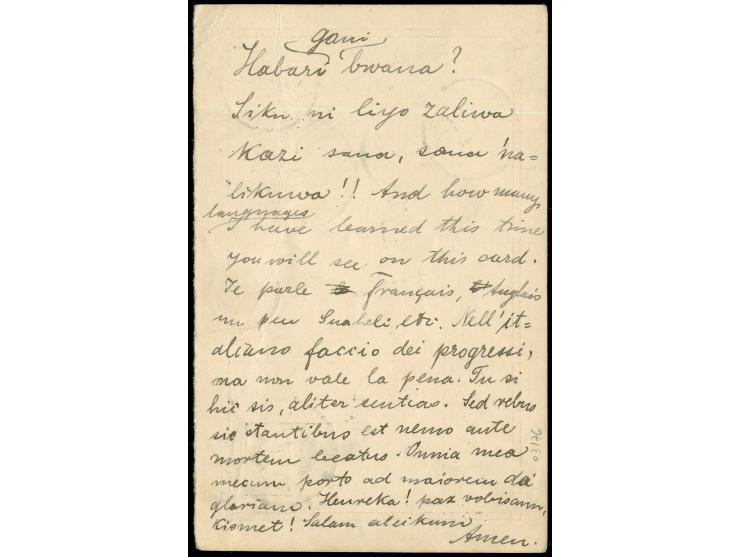 gani
Habari bwana?
Siku ni liyo zaliwa
Kazi sana, sana 'na=
likuwa!! And how many
languages
I have learned this time
you will see on this card.
Je parle français, Anglais
un peu Suaheli, etc. Nell'it=
aliano faccio dei progressi,
ma non vale la pena. Tu si
hic sis, aliter sentias. Sed rebus
sic stantibus est nemo ante
mortem beatus. Omnia mea
mecum porto ad maiorem da
gloriam. Heureka! pax vobiscum,
Kismet! Salam aleikum
Amen.
03/76